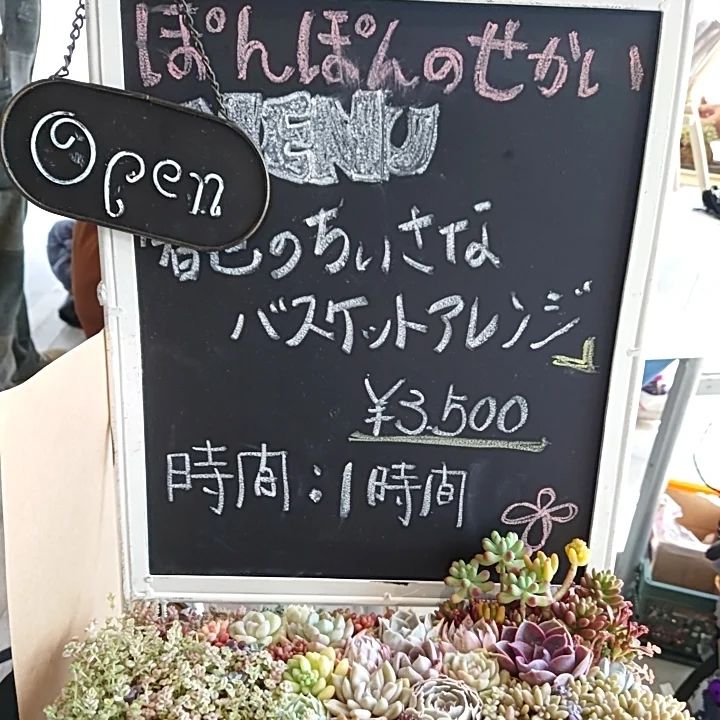 ぽんぽんのせかい
MENU
Open
春色のちいさな
バスケットアレンジ
¥3.500
時間:1時間